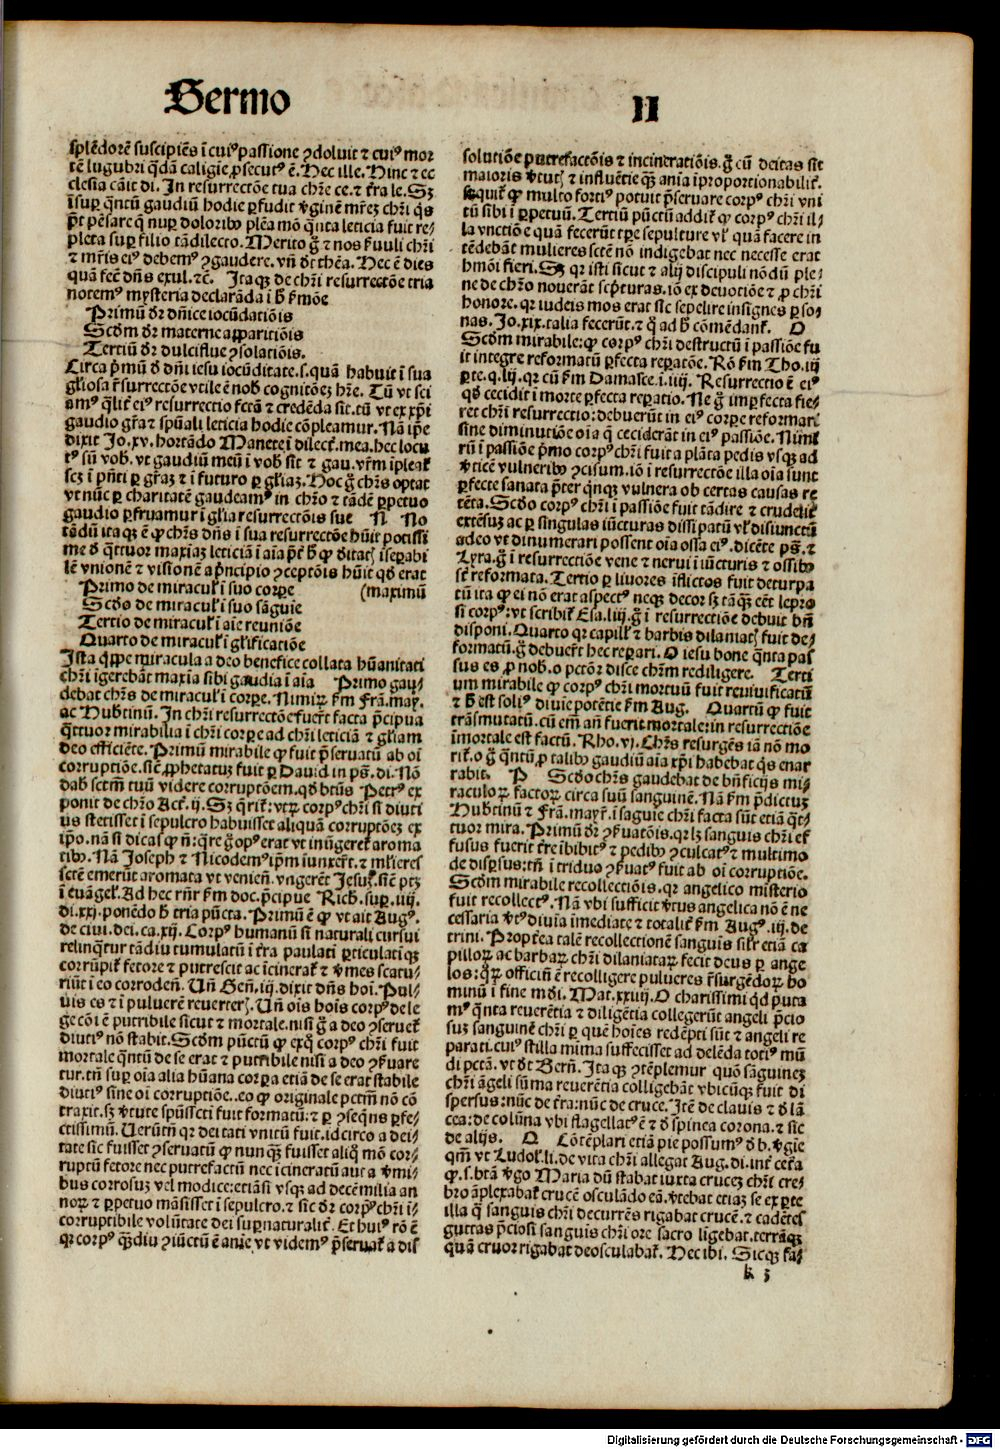 Sermo
II
splēdorē suscipiēs ī cuiꝰ passione ꝯdoluit ⁊ cuiꝰ mor
tē lugubri q̄dā caligie ꝓsecutꝰ ē. Hec ille. Hinc ⁊ ec
clesia cāit di. In resurrectōe tua chr̄e ce. ⁊ t̄ra le. Sꝫ
īsuꝑ q̄ntū gaudiū hodie ꝑfudit v̓ginē mr̄eꝫ chr̄i q̇s
p̄t pēsare q̄ nuꝑ doloribꝰ plēa mō q̄nta leticia fuit re⸗
pleta suꝑ filio tā dilecto. Merito ḡ ⁊ nos ẜuuli chr̄i
⁊ mr̄is eiꝰ debemꝰ ꝯgaudere. vn̄ dr̄ thēa. Hec ē dies
quā fec̄ dn̄s exul. ⁊c̄. Itaqꝫ de chr̄i resurrectōe tria
notemꝰ mysteria declarāda ī h̄ ẜmōe
Primū dr̄ dn̄ice iocūdatiōis
Scd̄m dr̄ materne apparitiōis
Tertiū dr̄ dulciflue ꝯsolatiōis.
Circa p̄mū d̓ dn̄i iesu iocūditate. s. quā habuit ī sua
gl̄iosa r̄surrectōe vtile ē nob̄ cognitōeꝫ hr̄e. Tū vt sci
amꝰ q̄lit̓ eiꝰ resurrectio fctā ⁊ credēda sit. tū vt ex xp̄i
gaudio gr̄a ⁊ spūali leticia hodie cōpleamur. Nā ip̄e
dixit Jo. xv. hortādo Manete ī dilect̄. mea. hec locu
tꝰ sū vob̄. vt gaudiū meū ī vob̄ sit ⁊ gau. vr̄m īpleat̓
scꝫ ī p̄nti ꝑ gr̄aꝫ ⁊ ī futuro ꝑ gl̄iaꝫ. Hoc ḡ chr̄s optat
vt nūc ꝑ charitatē gaudeamꝰ in chr̄o ⁊ tādē ꝑpetuo
gaudio ꝑfruamur ī gl̄ia resurrectōis sue N No
tādū itaqꝫ ē ꝙ chr̄s dn̄s ī sua resurrectōe hūit potissi
me d̓ q̇ttuor maxīaꝫ leticiā ī aīa p̄t h̄ ꝙ d̓itati īseꝑabi
lē vnionē ⁊ visionē a p̄ncipio ꝯceptōis hūit qd̓ erat
Primo de miracul̓ ī suo corꝑe (maximū
Scd̄o de miracul̓ ī suo sāguie
Tertio de miracul̓ ī aīe reuniōe
Quarto de miracul̓ ī gl̄ificatiōe
Ista q̇ppe miracula a deo benefice collata hūanitati
chr̄i īgerebāt maxīa sibi gaudia ī aīa Primo gau⸗
debat chr̄s de miracul̓ ī corꝑe. Nimiꝝ ẜm Frā. may.
ac Hubtinū. In chr̄i resurrectōe fuer̄t facta p̄cipua
q̇ttuor mirabilia ī chr̄i corꝑe ad chr̄i leticiā ⁊ gl̄iam
deo efficiēte. Primū mirabile ꝙ fuit p̄seruatū ab oī
corruptiōe. sic̄ ꝓphetatuꝫ fuit ꝑ Dauid in pš. di. Nō
dab̄ sctm̄ tuū videre corruptōem. qd̓ btūs Petrꝰ ex
ponit de chr̄o Act̄. ij. Sꝫ q̄rit̓: vtꝝ corpꝰ chr̄i si diuti
us stetisset ī sepulcro habuisset aliquā corruptōeꝫ ex
ip̄o. nā si dicas ꝙ n̄: q̄re ḡ opꝰ erat vt inūgeret̓ aroma
tibꝰ. Nā Joseph ⁊ Nicodemꝰ ip̄m iunxer̄t. ⁊ ml̓ieres
sctē emerūt aromata vt venien̄. vngerēt Jesuꝫ. sic̄ ptꝫ
ī euāgel̓. Ad hec rn̄r ẜm doc. p̄cipue Rich̄. suꝑ. iiij.
di. xxj. ponēdo h̄ tria pūcta. Primū ē ꝙ vt ait Augꝰ.
de ciui. dei. ca. xij. Corpꝰ humanū si naturali cursui
relinq̄tur tādiu tumulatū ī t̄ra paulati ꝑticulatiqꝫ
corrūpit̓ fetore ⁊ putrescit ac īcinerat̓ ⁊ v̓mes scatu⸗
riūt ī eo corroden̄. Un̄ Gen̄. iij. dixit dn̄s hoī. Pul⸗
uis es ⁊ ī puluerē reuerter̄. Un̄ oīs hoīs corpꝰ de le
ge cōi ē putribile sicut ⁊ mortale. nisi ḡ a deo ꝯseruet̓
diutiꝰ nō stabit. Scd̄m pūctū ꝙ exq̄ corpꝰ chr̄i fuit
mortale q̄ntū de se erat ⁊ putribile nisi a deo ꝯẜuare
tur. tn̄ suꝑ oīa alia hūana corꝑa etiā de se erat stabile
diutiꝰ sine oī corruptiōe. eo ꝙ originale pctm̄ nō cō
traxit. sꝫ v̓tute spūsscti fuit formatū: ⁊ ꝑ ꝯseqn̄s ꝑfe⸗
ctissimū. Uerūtn̄ qꝛ deitati vnitū fuit. idcirco a dei⸗
tate sic fuisset ꝯseruatū ꝙ nunqꝫ fuisset aliq̄ mō cor⸗
ruptū fetore nec putrefactū nec icineratū aut a v̓mi⸗
bus corrosuꝫ vel modice: etiāsi vsqꝫ ad decē milia an
noꝝ ⁊ ꝑpetuo māsisset ī sepulcro. ⁊ sic dr̄ corpꝰ chr̄i ī⸗
corruptibile volūtate dei suꝑnaturalit̓. Et huiꝰ rō ē
qꝛ corpꝰ q̄ꝫdiu ꝯiūctū ē anīe vt videmꝰ p̄seruat̓ a dis
solutiōe putrefactōis ⁊ incineratiōis. ḡ cū deitas sit
maioris v̓tutꝭ ⁊ influētie qꝫ anīa īproportionabilit̓.
sequit̓ ꝙ multo fortiꝰ potuit p̄seruare corpꝰ chr̄i vni
tū sibi ī ꝑpetuū. Tertiū pūctū addit̓ ꝙ corpꝰ chr̄i il⸗
la vnctiōe quā fecerūt tꝑe sepulture vl̓ quā facere in
tēdebāt mulieres sctē nō indigebat nec necesse erat
hmōi fieri. Sꝫ qꝛ isti sicut ⁊ alij discipuli nōdū ple⸗
ne de chr̄o nouerāt sc̓pturas. iō ex deuotiōe ⁊ ꝓ chr̄i
honore. qꝛ iudeis mos erat sic sepelire insignes ꝑso⸗
nas. Jo. xix. talia fecerūt. ⁊ q̄ ad h̄ cōmēdant̓. O
Scd̄m mirabile: ꝙ corpꝰ chr̄i destructū ī passiōe fu
it integre reformatū ꝑfecta reꝑatōe. Rō ẜm Tho. iij
ꝑte. q. lij. qꝛ cū ẜm Damasce. i. iiij. Resurrectio ē eiꝰ
qd̓ cecidit ī morte ꝑfecta reꝑatio. Ne ḡ īꝑfecta fie⸗
ret chr̄i resurrectio: debuerūt in eiꝰ corꝑe reformari
sine diminutiōe oīa q̄ ceciderāt in eiꝰ passiōe. Nimi
rū ī passiōe p̄mo corpꝰ chr̄i fuit a plāta pedis vsqꝫ ad
v̓ticē vulneribꝰ ꝯcisum. iō ī resurrectōe illa oīa sunt
ꝑfecte sanata p̄ter qnqꝫ vulnera ob certas causas re
tēta. Scd̓o corpꝰ chr̄i ī passiōe fuit tādire ⁊ crudelit̓
extēsuꝫ ac ꝑ singulas iūcturas dissipatū vl̓ disiunctū
adeo vt dinumerari possent oīa ossa eiꝰ. dicēte pš. ⁊
Lyra. ḡ ī resurrectiōe vene ⁊ nerui ī iūcturis ⁊ ossibꝰ
sūt reformata. Tertio ꝑ liuores īflictos fuit deturpa
tū ita ꝙ ei nō erat aspectꝰ neqꝫ decor sꝫ tāqꝫ eēt lepro
si corpꝰ: vt scribit̓ Esa. liij. ḡ ī resurrectiōe debuit bn̄
disponi. Quarto qꝛ capill̓ ⁊ barbis dilaniatꝭ fuit de⸗
formatū. ḡ debuer̄t hec reꝑari. O iesu bone q̄nta pas
sus es ꝓ nob̄. o pctōr disce chr̄m rediligere. Terti
um mirabile ꝙ corpꝰ chr̄i mortuū fuit reuiuificatū
⁊ h̄ est soliꝰ diuīe potētie ẜm Aug. Quartū ꝙ fuit
trāsmutatū. cū em̄ an̄ fuerit mortale: in resurrectiōe
īmortale est factū. Rho. vj. Chr̄s resurgēs iā nō mo
rit̓. o ḡ q̄ntū ꝓ talibꝰ gaudiū aīa xp̄i habebat q̇s enar
rabit. P Scd̓o chr̄s gaudebat de bn̄ficijs mi⸗
raculoꝝ factoꝝ circa suū sanguinē. Nā ẜm p̄dictuꝫ
Hubtinū ⁊ Frā. mayr̄. ī saguie chr̄i facta sūt etiā q̇t⸗
tuor mira. Primū dr̄ ꝯẜuatōis. qꝛ lꝫ sanguis chr̄i ef
fusus fuerit t̄re ībibitꝰ ⁊ pedibꝰ ꝯculcatꝰ ⁊ multimo
de disꝑsus: tn̄ ī triduo ꝯẜuatꝰ fuit ab oī corruptiōe.
Scd̄m mirabile recollectiōis. qꝛ angelico misterio
fuit recollectꝰ. Nā vbi sufficit v̓tus angelica nō ē ne
cessaria v̓tꝰ diuīa imediate ⁊ totalit̓ ẜm Augꝰ. iij. de
trini. Propt̓ea talē recollectionē sanguis silr̄ etiā ca
pilloꝝ ac barbaꝝ chr̄i dilaniataꝝ fecit deus ꝑ ange
los: q̄ꝝ officiū ē recolligere pulueres r̄surgēdoꝝ ho
minū ī fine mūdi. Mat. xxiiij. O charissimi qd̓ puta
mꝰ q̄nta reuerētia ⁊ diligētia collegerūt angeli p̄cio
suꝫ sanguinē chr̄i ꝑ quē hoīes redēpti sūt ⁊ angeli re
parati. cuiꝰ stilla mīma suffecisset ad delēda totiꝰ mū
di pctā. vt dr̄ Bern̄. Itaqꝫ ꝯtēplemur quō sāguineꝫ
chr̄i āgeli sūma reuerētia colligebāt vbicūqꝫ fuit di
spersus: nūc de t̄ra: nūc de cruce. Itē de clauis ⁊ d̓ lā
cea: de colūna vbi flagellatꝰ ē ⁊ d̓ spinea corona. ⁊ sic
de alijs. Q Cōtēplari etiā pie possumꝰ d̓ b. v̓gie
qm̄ vt Ludol̓. li. de vita chr̄i allegat Aug. di. int̓ cet̓a
ꝙ. s. btā v̓go Maria dū stabat iuxta cruceꝫ chr̄i cre⸗
bro āplexabat̓ crucē osculādo eā. v̓tebat etiaꝫ se ex ꝑte
illa q̄ sanguis chr̄i decurrēs rigabat crucē. ⁊ cadētes
guttas p̄ciosi sanguis chr̄i ore sacro ligebat. terrāqꝫ
quā cruor rigabat deosculabat̓. Hec ibi. Sicqꝫ fa⸗
k 3
Digitalisierung gefördert durch die Deutsche Forschungsgemeinschaft - DFG